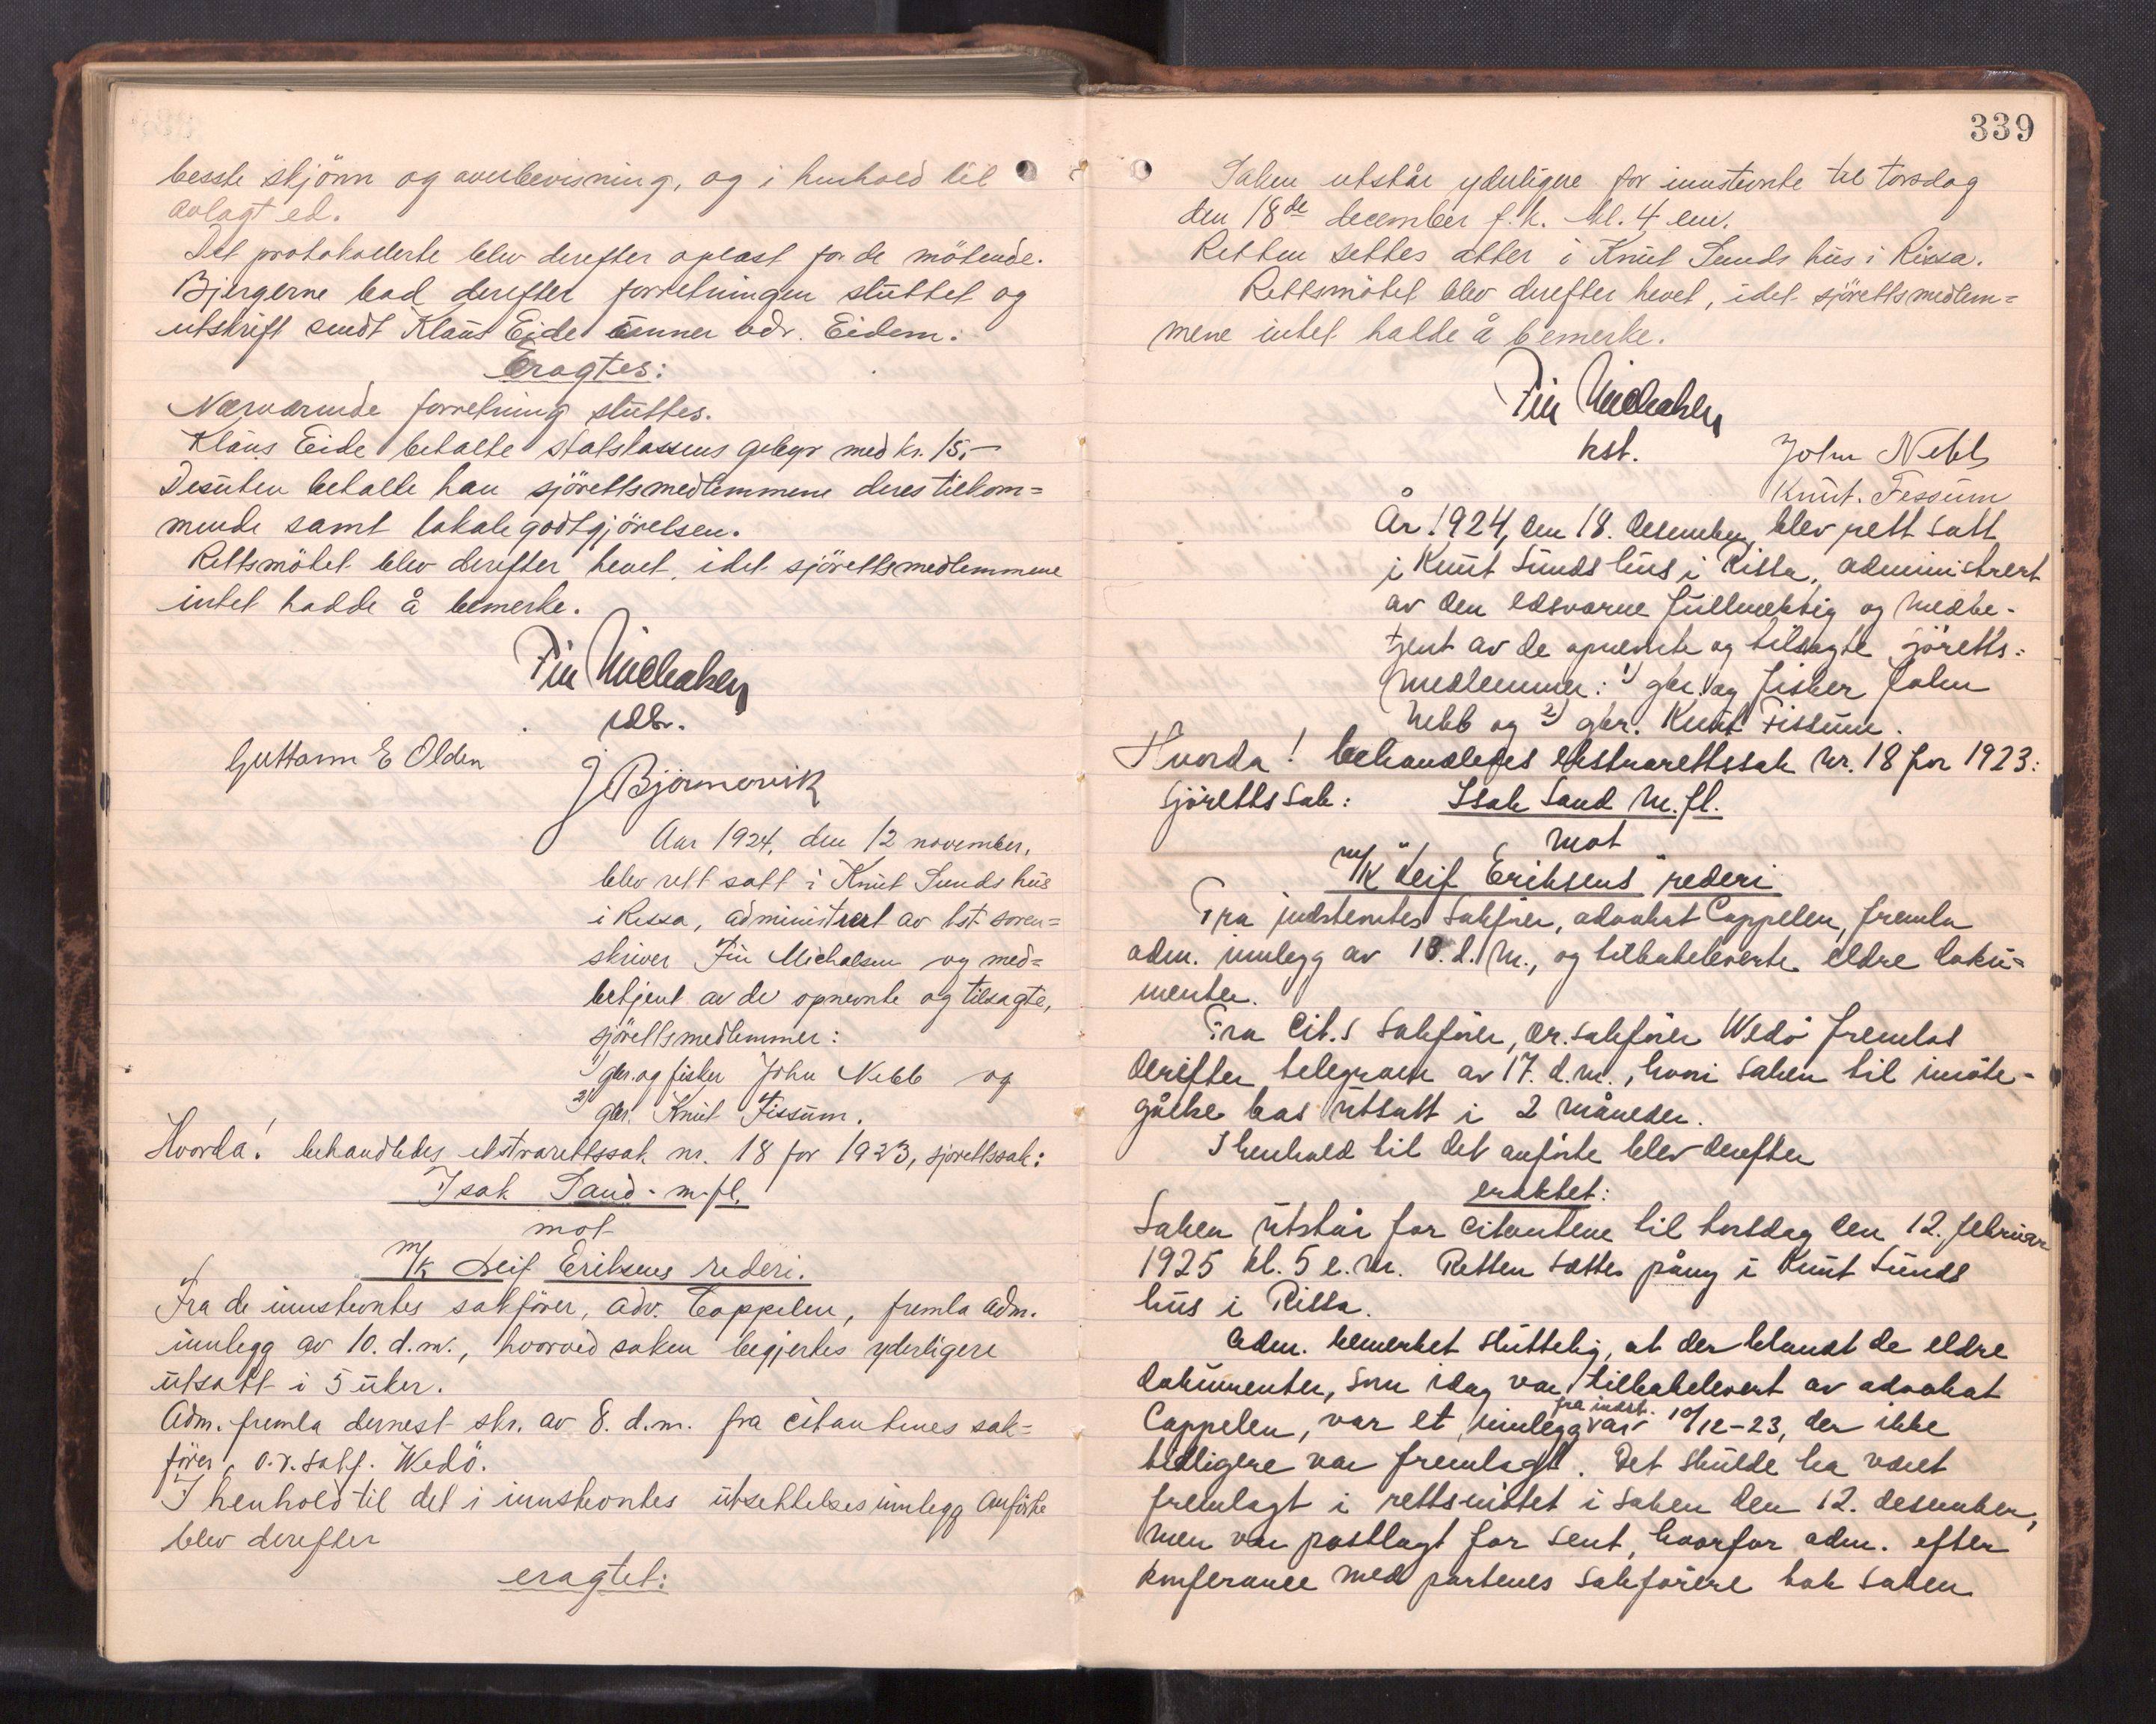 besste skjönn og overbevisning, og i henhold til
avlagt ed.
Det protokollerte blev derefter oplæst for de mötende.
Bjergerne bad derefter forretningen sluttet og
utskrift sendt Klaus Eide adr. Eidem.
Eragtes:
Nærværende forretning sluttes.
Klaus Eide betalte statskassens gebyr med kr. 15,-
Desuten betalte han sjörettsmedlemmene deres tilkom=
mende samt lokalegodtgjörelsen.
Rettsmötet blev derefter hevet, idet sjörettsmedlemmene
intet hadde å bemerke.
Fin Michalsen
Guttorm E Olden
J Bjørnervik
Aar 1924, den 12 november,
blev rett satt i Knut Sunds hus
i Rissa, administrert av kst. soren=
skriver Fin Michalsen og med=
betjent av de opnevnte og tilsagte,
sjörettsmedlemmer:
1) gbr. og fisker John Nebb og
2) gbr. Knut Fissum.
Hvorda! behandledes ekstrarettssak nr. 18 for 1923, sjorettssak:
Isak Sand m. fl.
mot
m/k Leif Eriksens rederi.
Fra de innstevntes sakförer, adv. Cappelen, fremla adm.
innlegg av 10. d.m., hvorved saken begjertes yderligere
utsatt i 5 uker.
Adm. fremla dernest skr. av 8. d.m. fra citantenes sak=
förer, o.r.sakf. Wedö.
I henhold til det i innstevntes utsettelsesinnlegg anförte
blev derefter
eragtet:
339
Saken utstår yderligere for innstevnte til torsdag
den 18de december f.k. kl. 4 em.
Retten settes atter i Knut Sunds hus i Rissa.
Rettsmötet blev derefter hevet, idet sjörettsmedlem=
mene intet hadde å bemerke.
Fin Michalsen
kst.
John Nebb
Knut. Fessum
År 1924, den 18. desember, blev rett satt
i Knut Sunds hus i Rissa, administrert
av den edsvorne fullmektig og medbe-
tjent av de opnevnte og tilsagte sjöretts=
medlemmer: 1) gbr. og fisker John
Nebb og 2) gbr. Knut Fissum.
Hvorda! behandledes ekstrarettssak nr. 18 for 1923:
Sjörettssak: Isak Sand m. fl.
mot
m/k "Leif Eriksens" rederi
Fra indstevntes sakförer, advokat Cappelen, fremla
adm. innlegg av 18. d. m., og tilbakeleverte eldre doku=
menter.
Fra cit.s sakförer, or.sakförer Wedö fremlas
derefter telegram av 17. d.m., hvori saken til imöte-
gåelse bas utsatt i 2 måneder.
I henhold til det anförte blev derefter
eraktet:
Saken utstår for citantene til torsdag den 12. februar
1925 kl. 5 e.m. Retten sættes påny i Knut Sunds
hus i Rissa.
Adm. bemerket sluttelig, at der blandt de eldre
dokumenter, som idag var tilbakelevert av advokat
Cappelen, var et innlegg fra indst. av 10/12-23, der ikke
tidligere var fremlagt. Det skulde ha været
fremlagt i rettsmötet i saken den 12. desember,
men var postlagt for sent, hvorfor adm. efter
konferanse med partenes sakförere tok saken